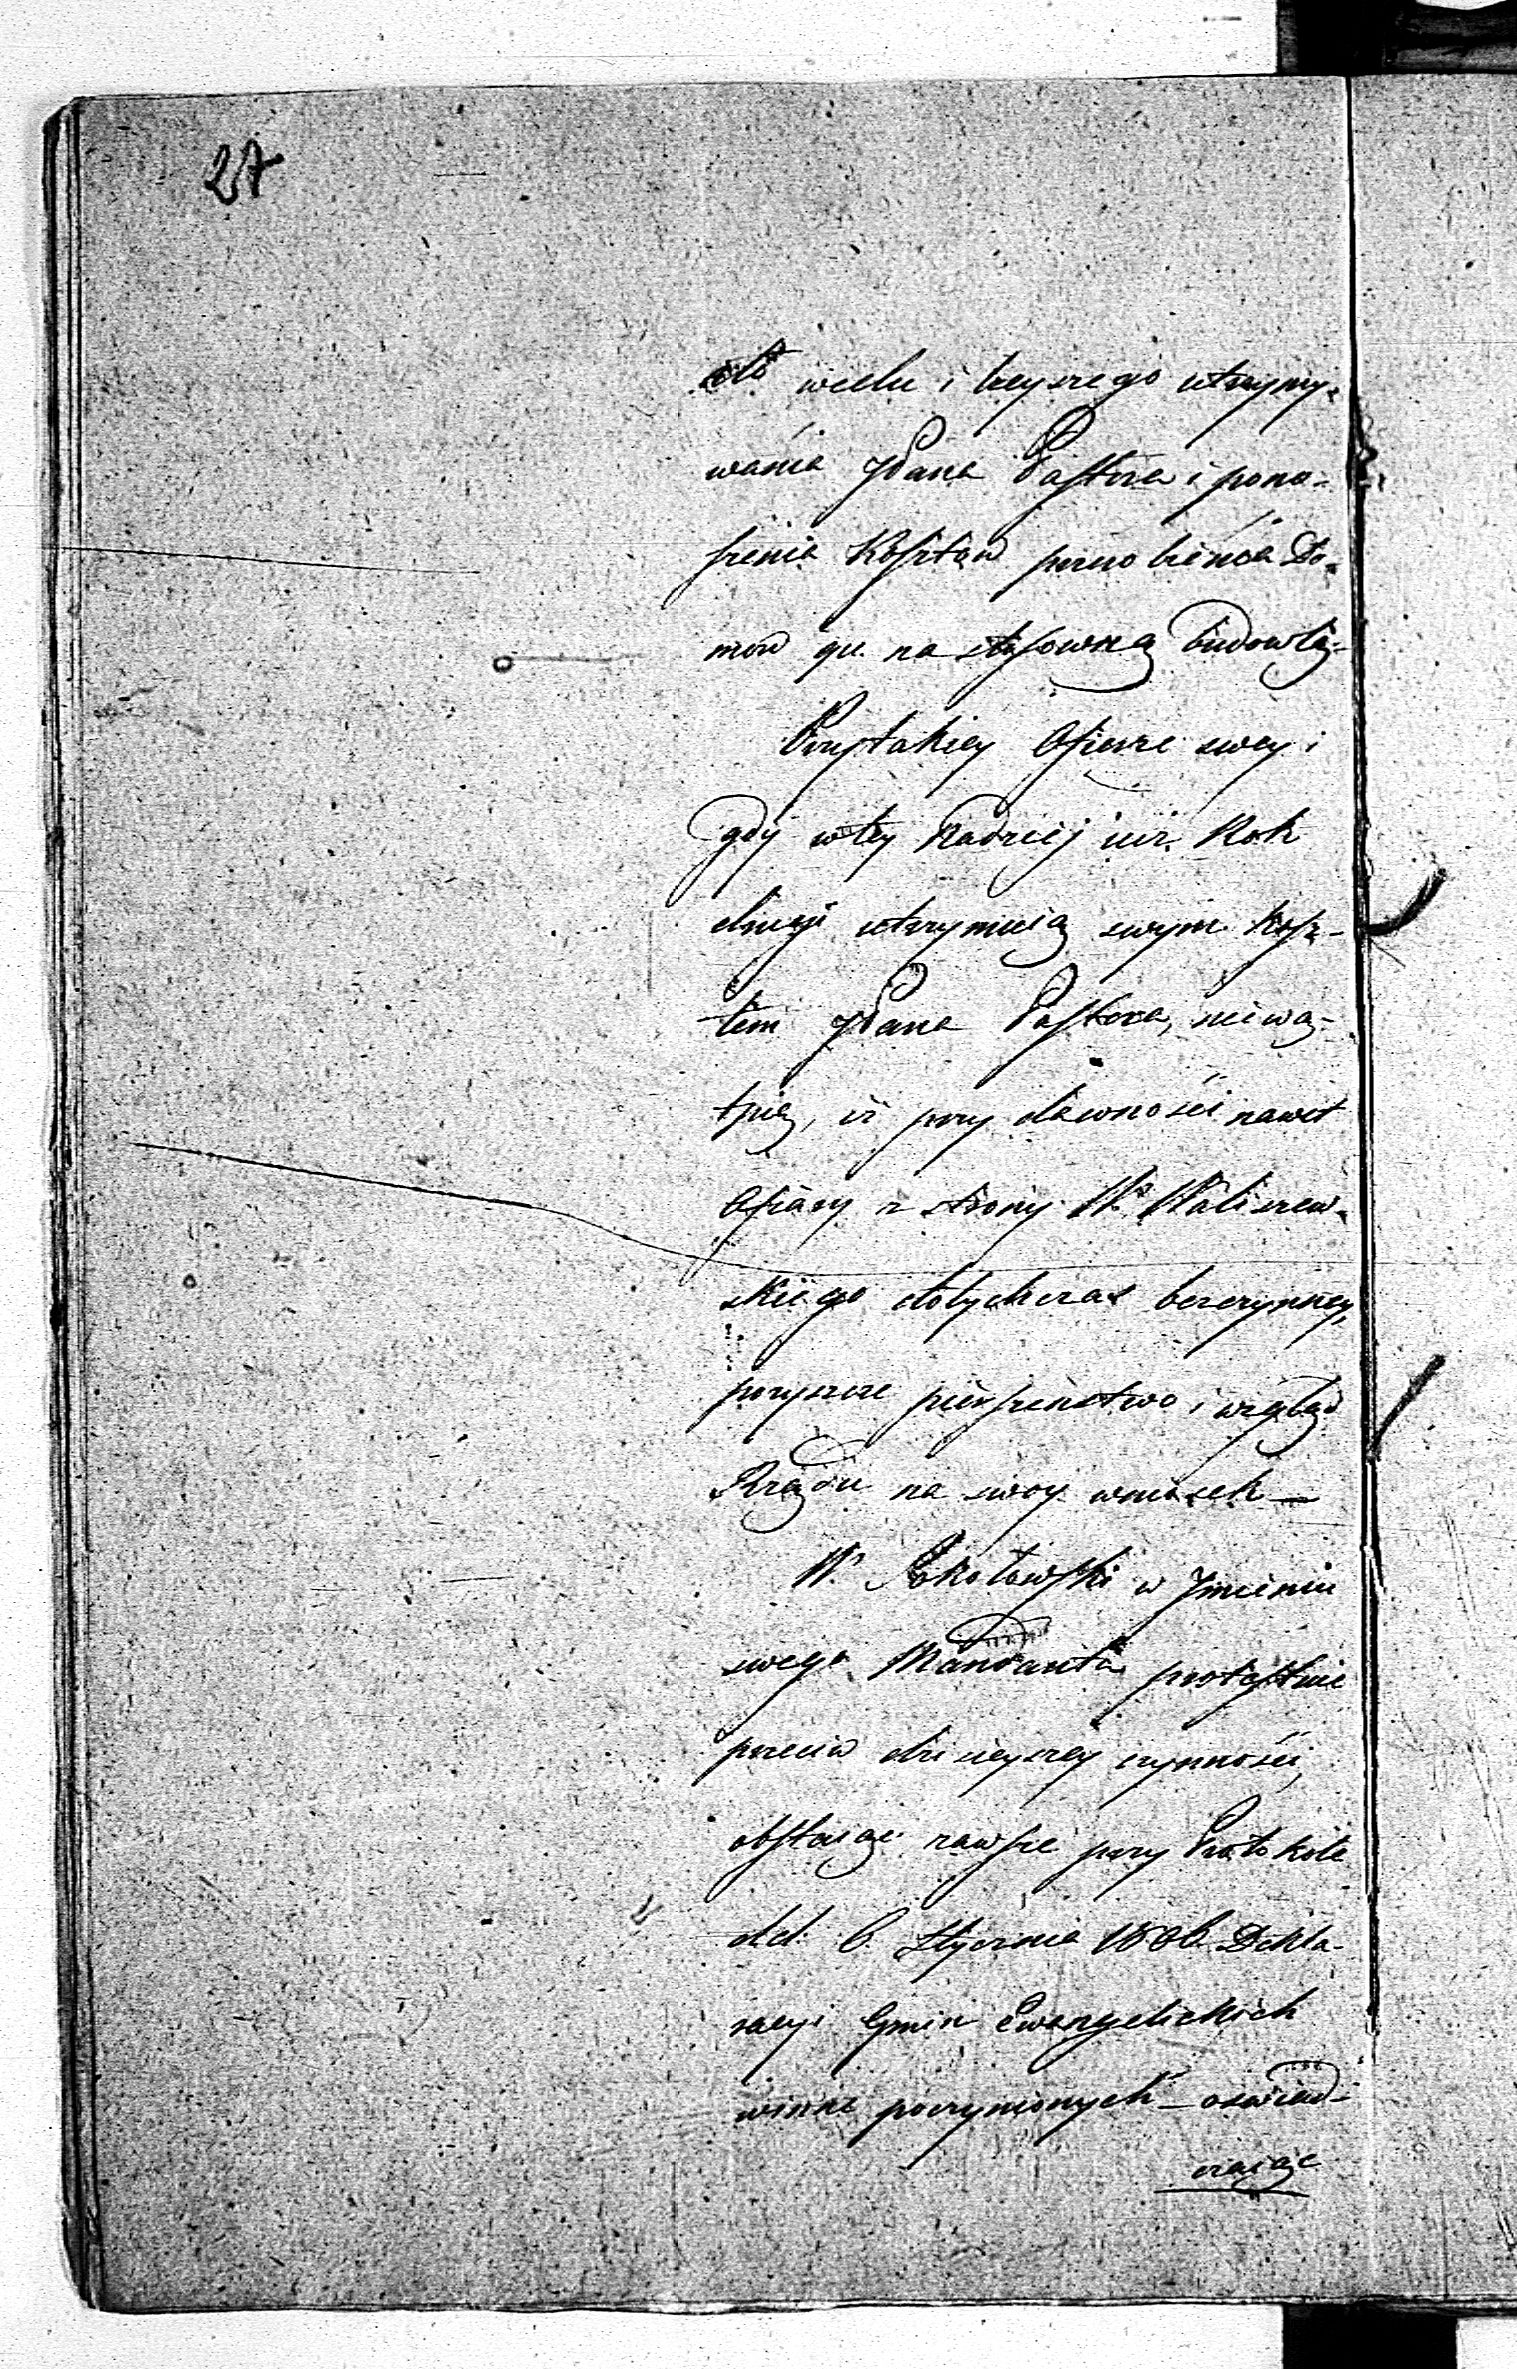 27
oto wielu i lepszego utrzymy-
wania JPana Pastora i pono-
szenia Kosztow przerobienia Do-
mow qu. na stosowną budowlą-
Przy takiey Ofierze swey i
gdy w tey Nadziej iuż Rok
drugi utrzymuią swym kosz-
tem JPana Pastora, niewą-
tpią, iż przy dawności nawet
Ofiary z strony W. Kaliszew-
skiego dotychczas bezczynney,
przyszłe pierszeństwo i wzgląd
Rządu na swoy wniosek —
W. Sokołowski w Jmieniu
swego Mandanta protestuie
przeciw dzisieyszey czynności,
obstaiąc zawsze przy Protokole
dd. 6. Stycznia 1806. Dekla-
racyi Gmin Ewangelickich
winne poczynionych — oswiad-
czaiąc